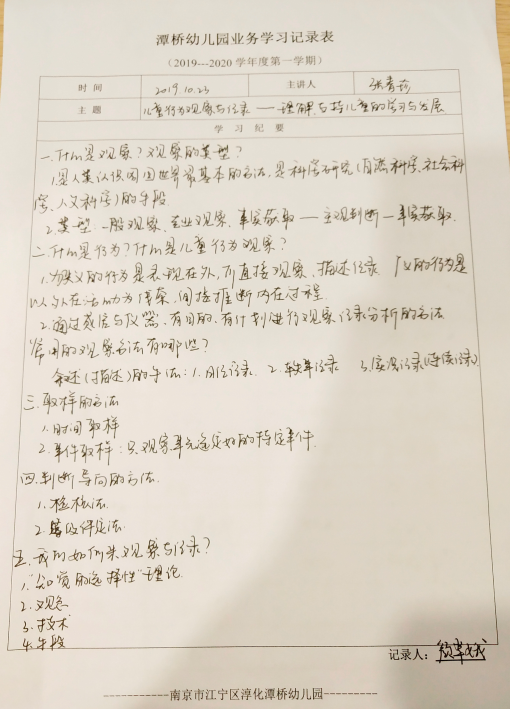 潭桥幼儿园业务学习记录表
（2019---2020学年度第一学期）
时间 2019.10.23 主讲人
主题 儿童行为观察与记录——理解、支持儿童的学习与发展
学习纪要
一.什么是观察？观察的类型？
1.是人类认识周围世界最基本的方法，是科学研究（自然科学、社会科
学、人文科学）的手段.
2.类型：一般观察、专业观察、事实获取——主观判断—事实获取.
二.什么是行为？什么是儿童行为观察？
1.狭义的行为是表现在外，可直接观察、描述记录 广义的行为是
以外在活动为线索，间接推断内在过程.
2.通过感官与仪器，有目的、有计划进行观察记录分析的方法
常用的观察方法有哪些？
叙述（描述）的方法：1.日记记录. 2.轶事记录 3.实况记录（持续记录）
三.取样的方法
1.时间取样
2.事件取样：只观察事先选定好的特定事件.
四.判断导向的方法.
1.检核法.
2.等级评定法.
五.我们如何来观察与记录？
1."知觉的选择性"理论.
2.观念
3.技术
4.手段
记录人：
------------南京市江宁区淳化潭桥幼儿园----------